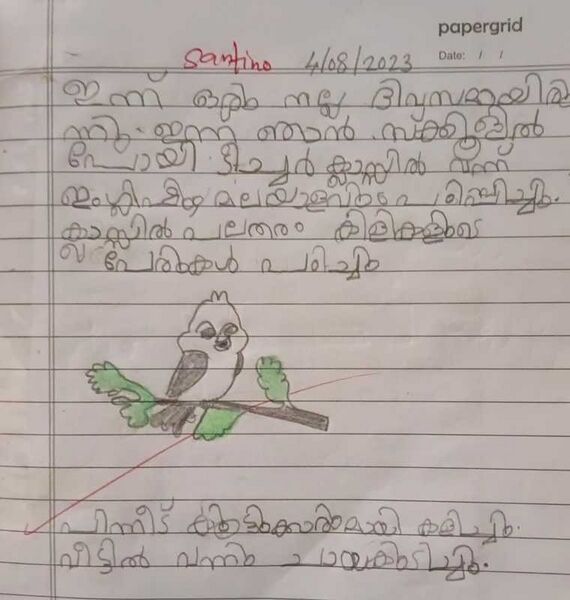 papergrid
Santino 4/08/2023 Date: / /
ഇന്ന് ഒരു നല്ല ദിവസമായിരു
ന്നു. ഇന്ന ഞാൻ സ്കൂളിൽ
പോയി ടീച്ചർ ക്ലാസ്സിൽ വന്ന്
ഇംഗ്ലീഷും മലയാളവും പഠിപ്പിച്ചു.
ക്ലാസ്സിൽ പലതരം കിളികളുടെ
പേരുകൾ പഠിച്ചു
പിന്നീട് കൂട്ടുകാരുമായി കളിച്ചു.
വീട്ടിൽ വന്നു ചായകുടിച്ചു.